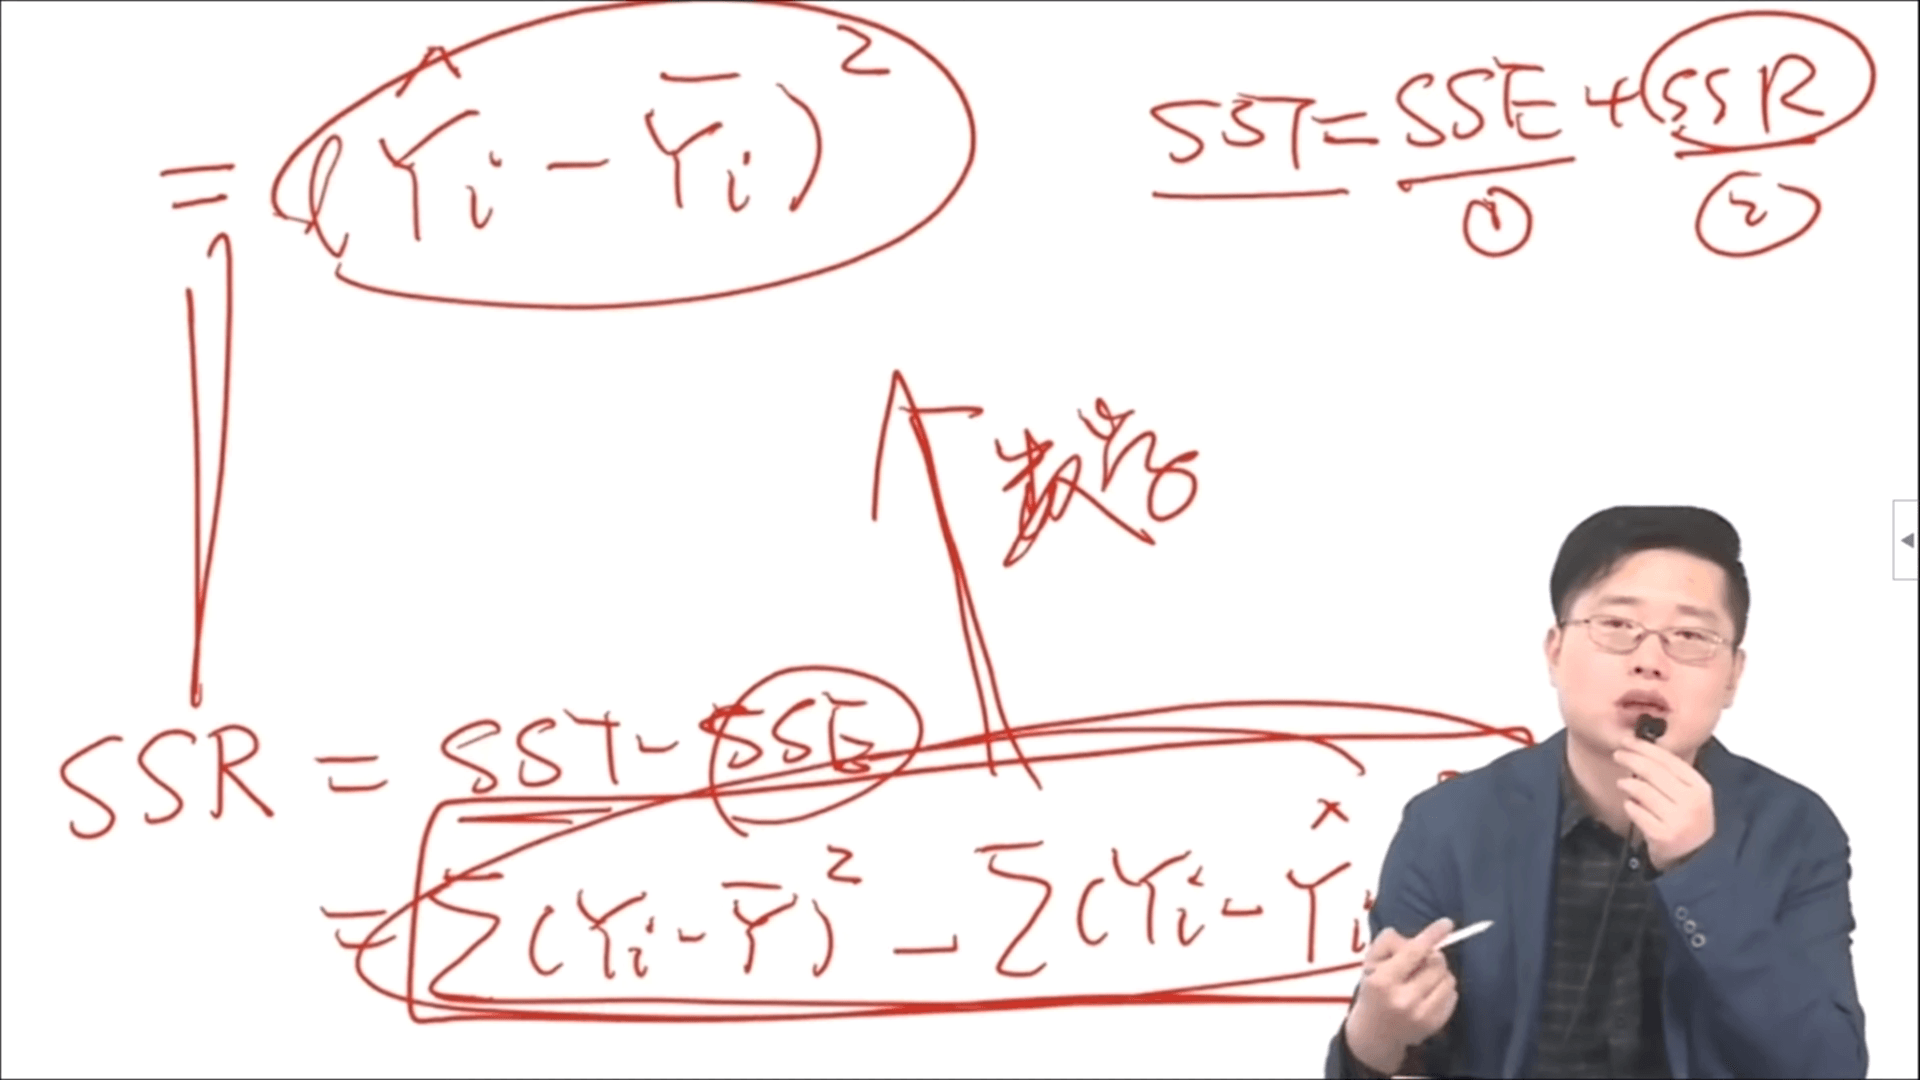 = (Ŷi - Ȳi)²
SST = SSE + SSR
① ②
数学
SSR = SST - SSE
= Σ(Yi - Ȳ)² - Σ(Yi - Ŷi